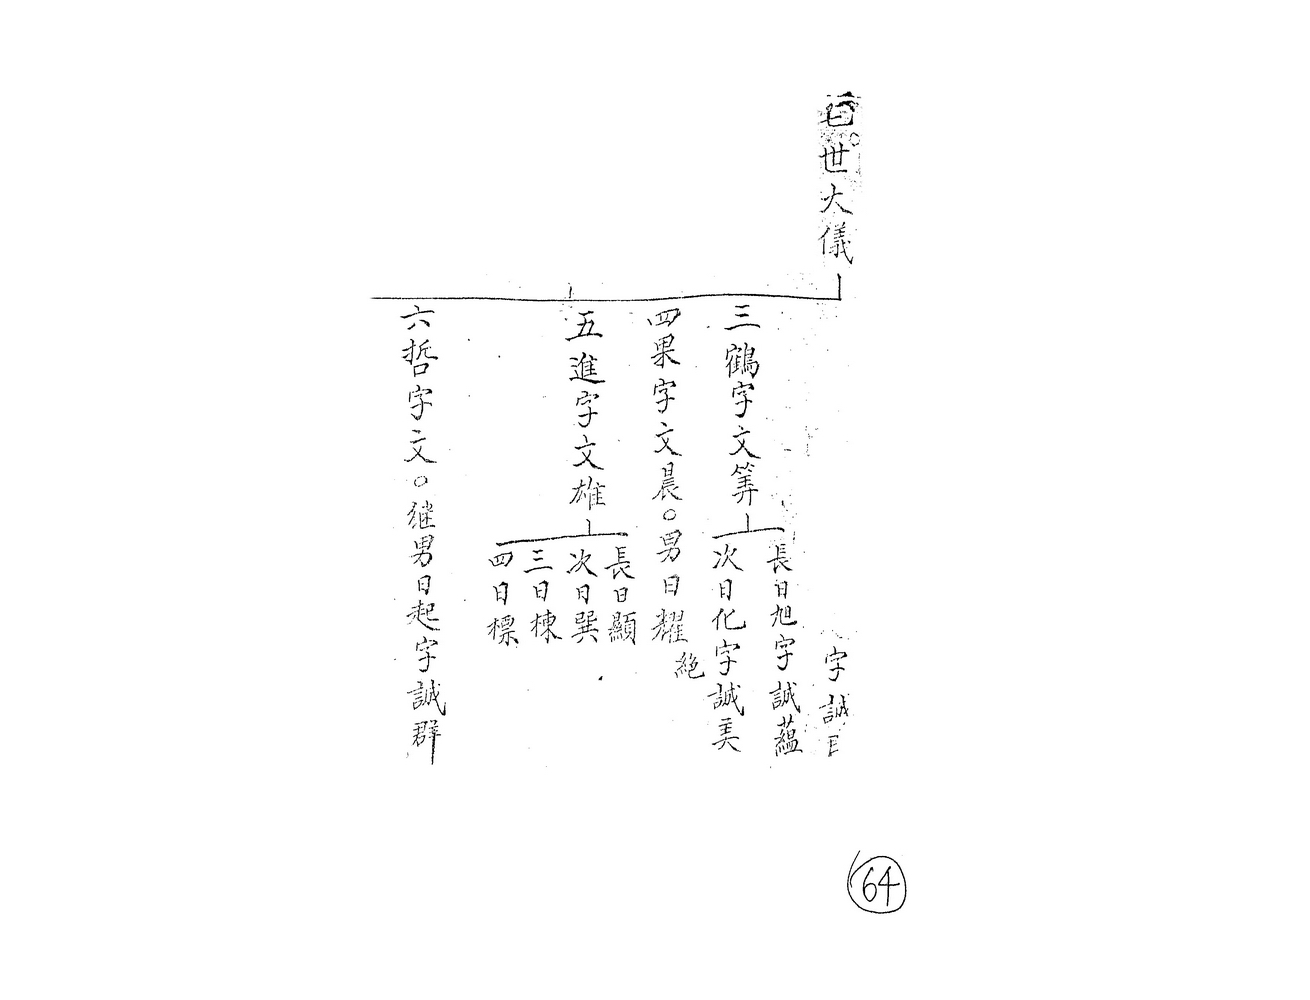 世大儀
字誠
三鶴字文筭
長曰旭字誠蘊
次曰化字誠美
四果字文晨。男曰耀
絶
五進字文雄
長曰顯
次曰巽
三曰棟
四曰標
六哲字文。继男曰起字誠群
64